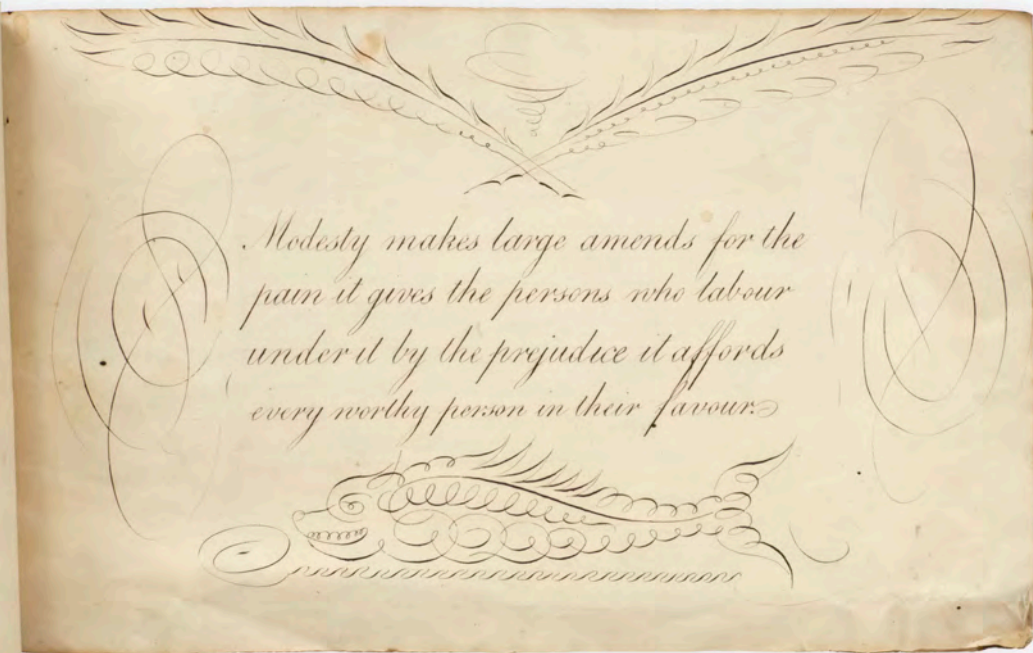 Modesty makes large amends for the
pain it gives the persons who labour
under it by the prejudice it affords
every worthy person in their favour.